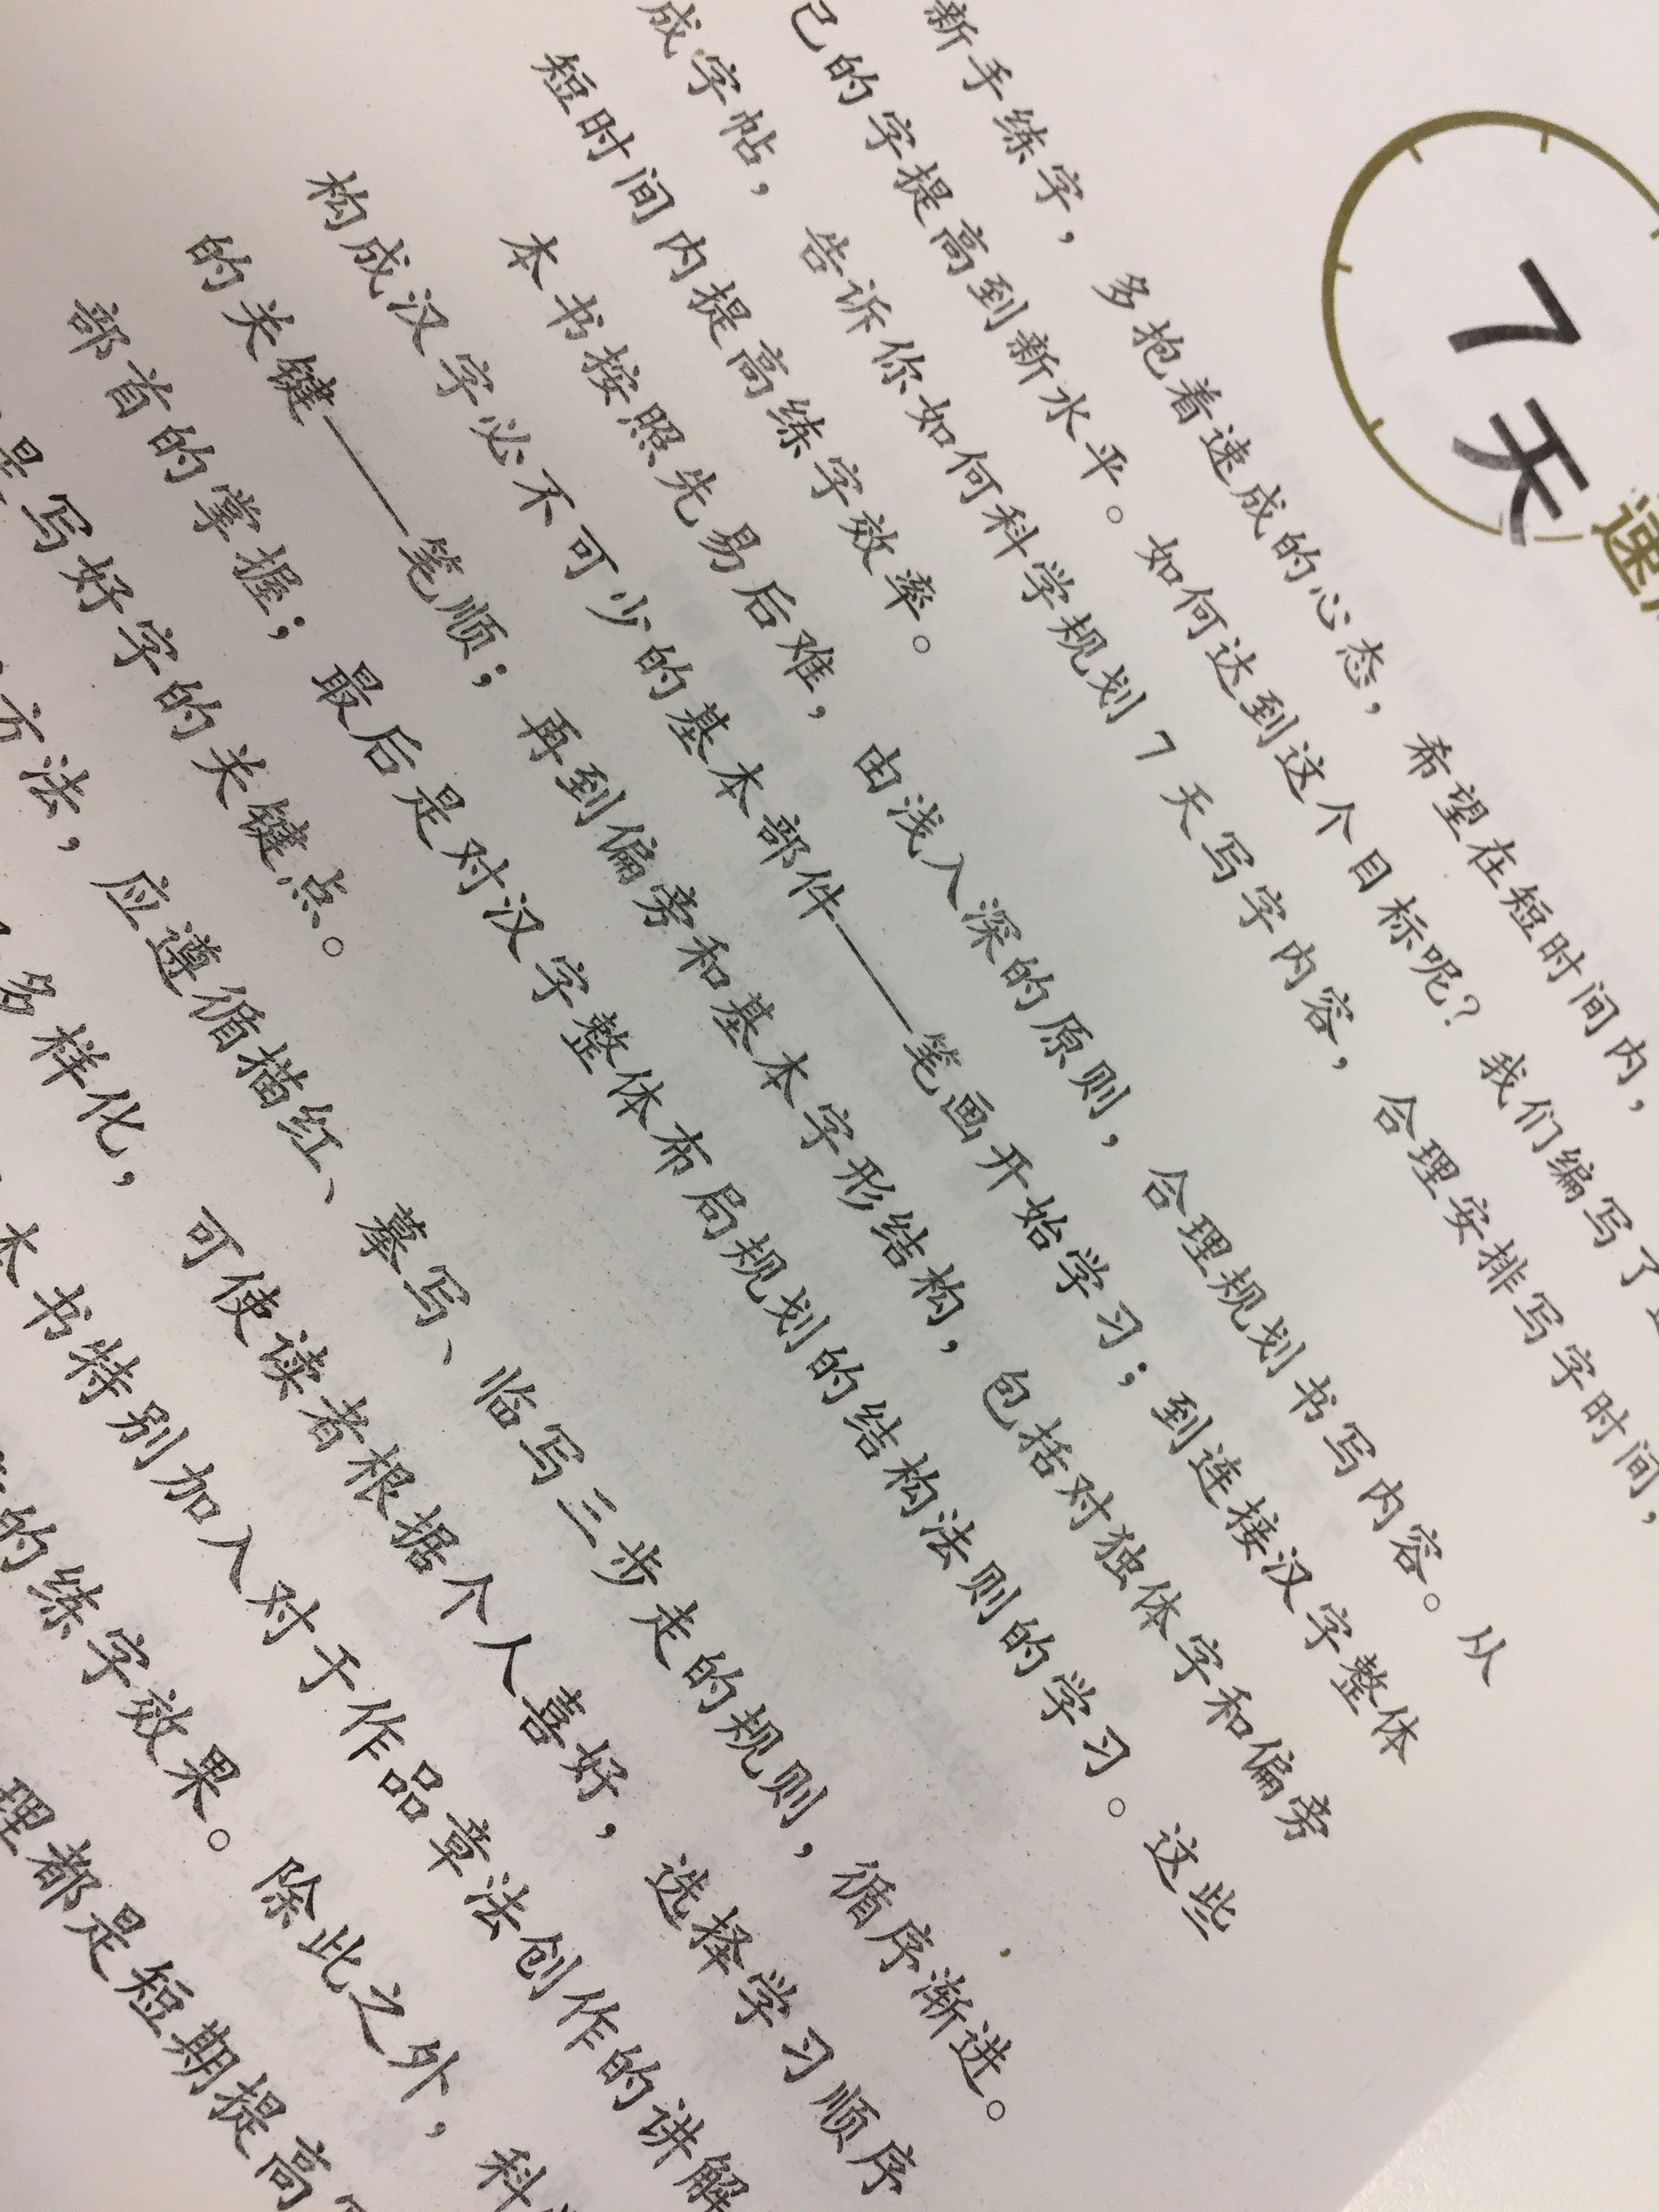 7天
速
新手练字，多抱着速成的心态，希望在短时间内，
己的字提高到新水平。如何达到这个目标呢？我们编写了
成字帖，告诉你如何科学规划7天写字内容，合理安排写字时间，
短时间内提高练字效率。
本书按照先易后难，由浅入深的原则，合理规划书写内容。从
构成汉字必不可少的基本部件——笔画开始学习；到连接汉字整体
的关键——笔顺；再到偏旁和基本字形结构，包括对独体字和偏旁
部首的掌握；最后是对汉字整体布局规划的结构法则的学习。这些
是写好字的关键点。
方法，应遵循描红、摹写、临写三步走的规则，循序渐进。
多样化，可使读者根据个人喜好，选择学习顺序
本书特别加入对于作品章法创作的讲解
的练字效果。除此之外，科
理都是短期提高